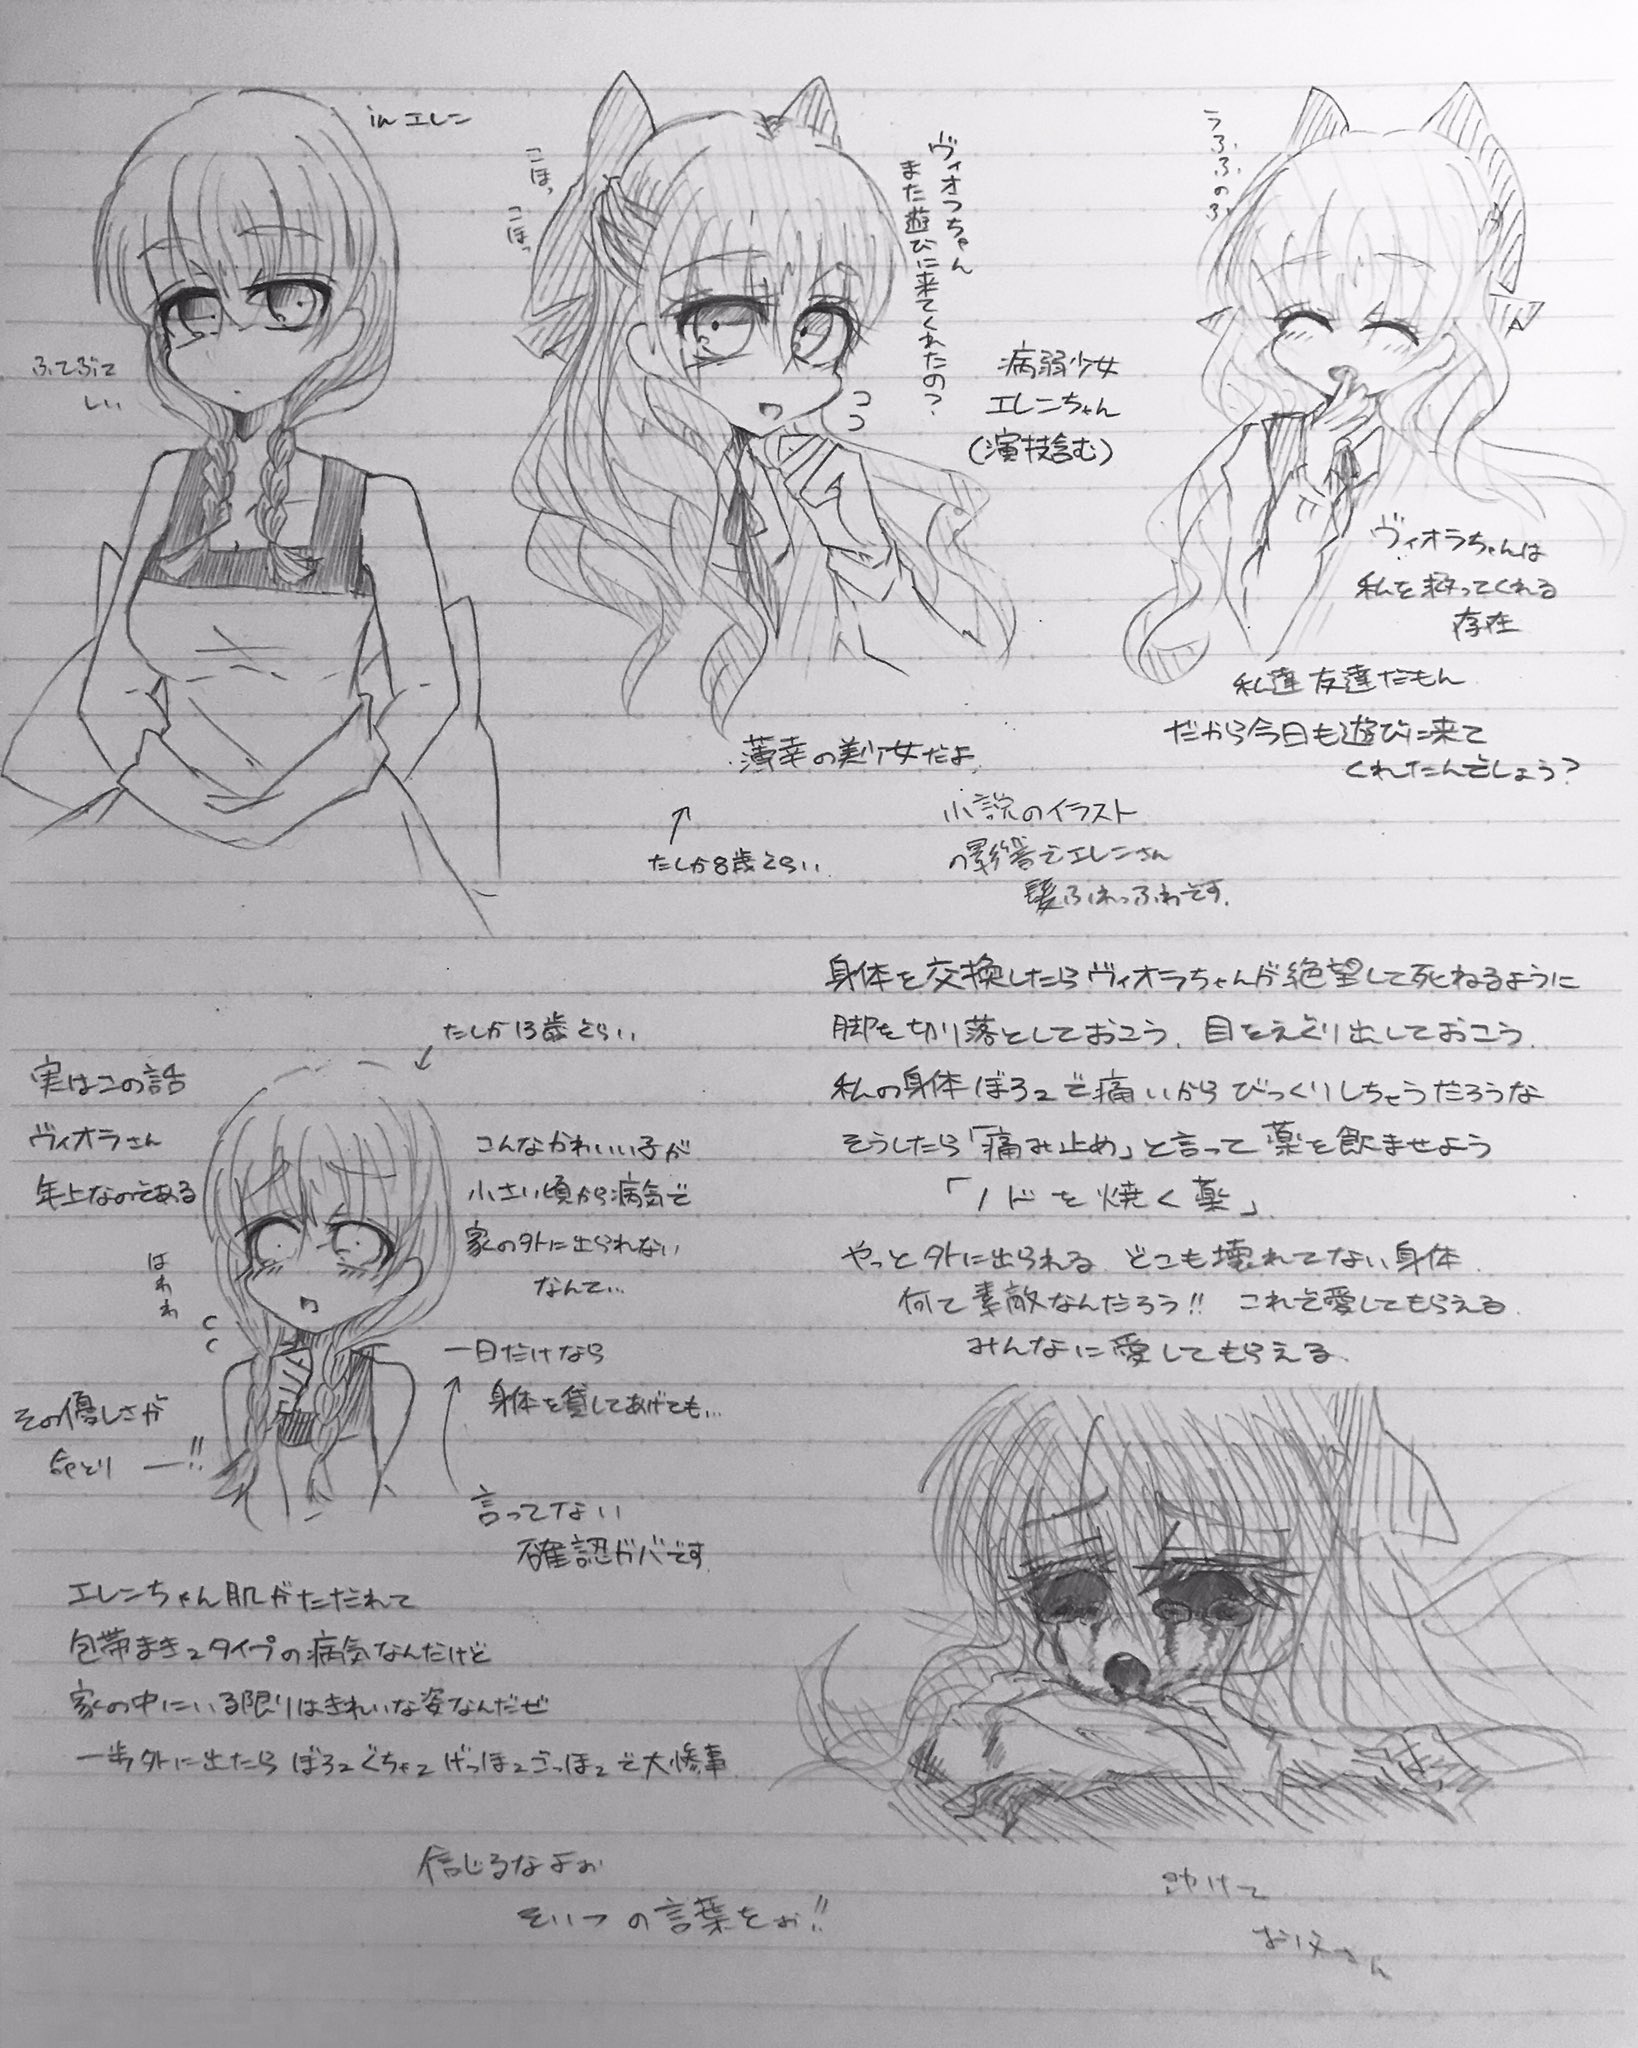 in エレン
ふてぶて
しい
こほっ
こほっ
ヴィオラちゃん
また遊びに来てくれたの?
病弱少女
エレンちゃん
(演技含む)
うふふのふ
ヴィオラちゃんは
私を救ってくれる
存在
私達友達だもん
だから今日も遊びに来て
くれたんでしょう?
薄幸の美少女だよ
↑
たしか8歳ぐらい
小説のイラスト
の影響でエレンさん
髪ふわっふわです.
身体を交換したらヴィオラちゃんが絶望して死ねるように
脚を切り落としておこう. 目をえぐり出しておこう.
私の身体ぼろ2で痛いからびっくりしちゃうだろうな
そうしたら「痛み止め」と言って薬を飲ませよう
「ノドを焼く薬」
やっと外に出られる. どこも壊れてない身体.
何て素敵なんだろう!! これで愛してもらえる.
みんなに愛してもらえる.
たしか13歳ぐらい
実はこの話
ヴィオラさん
年上なのである
はわわ
こんなかわいい子が
小さい頃から病気で
家の外に出られない
なんて…
一日だけなら
身体を貸してあげても…
その優しさが
命とり ー!!
言ってない
確認ガバです
エレンちゃん肌がただれて
包帯まき2タイプの病気なんだけど
家の中にいる限りはきれいな姿なんだぜ
一歩外に出たら ぼろ2ぐちゃ2 げっほ2ごっほ2で大惨事.
信じるなよぉ
そいつの言葉をぉ!!
助けて
お父さん